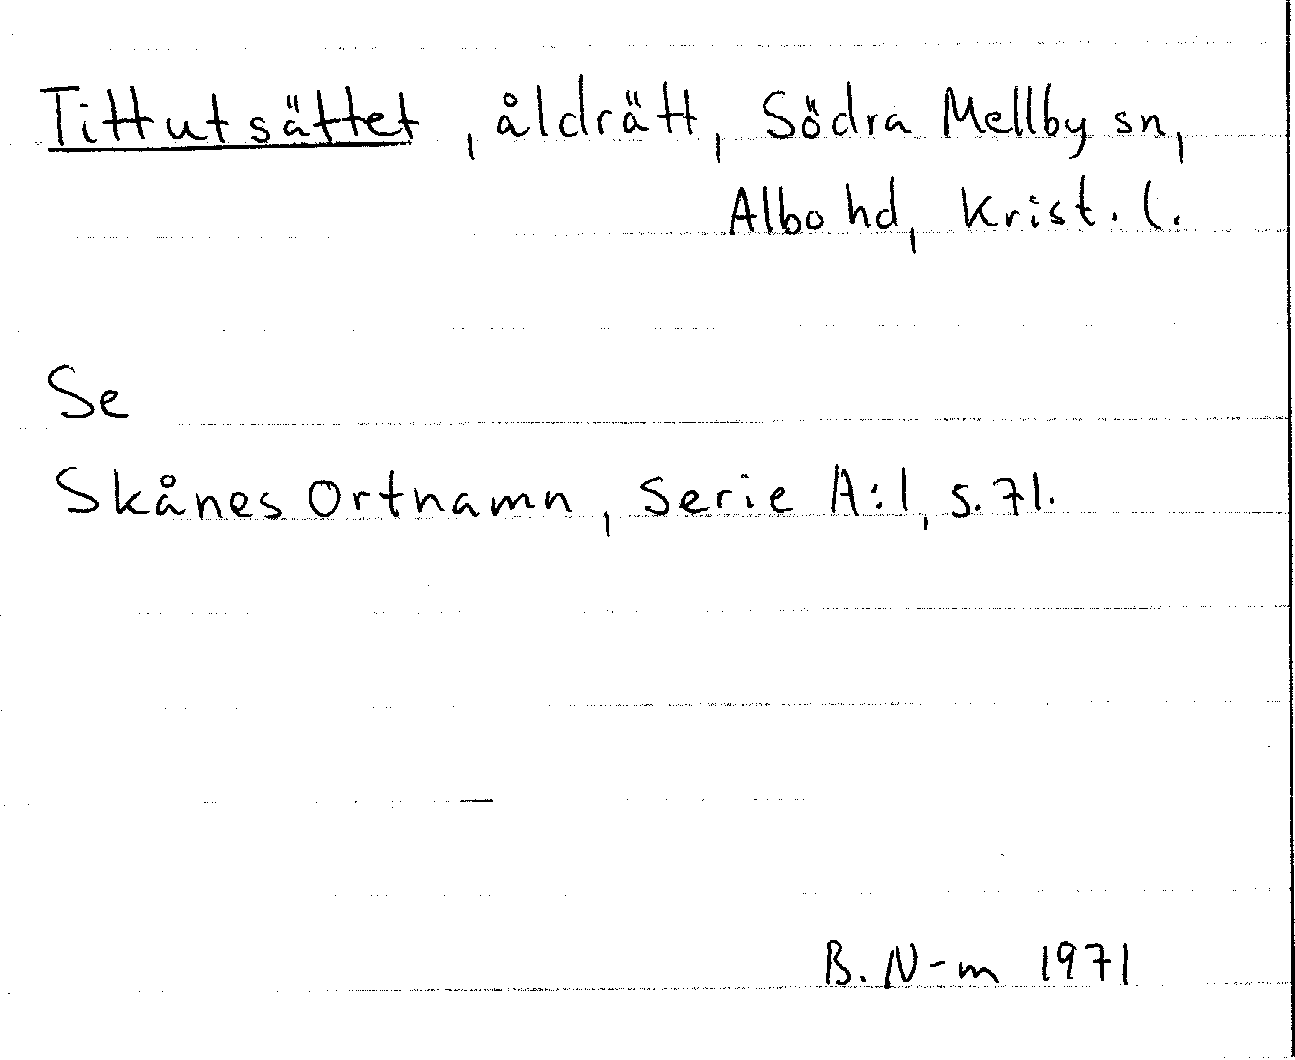 Tittutsättet, åldrätt, Södra Mellby sn,
Albo hd, Krist. l.
Se
Skånes Ortnamn, Serie A:1, s. 71.
B. N-m 1971